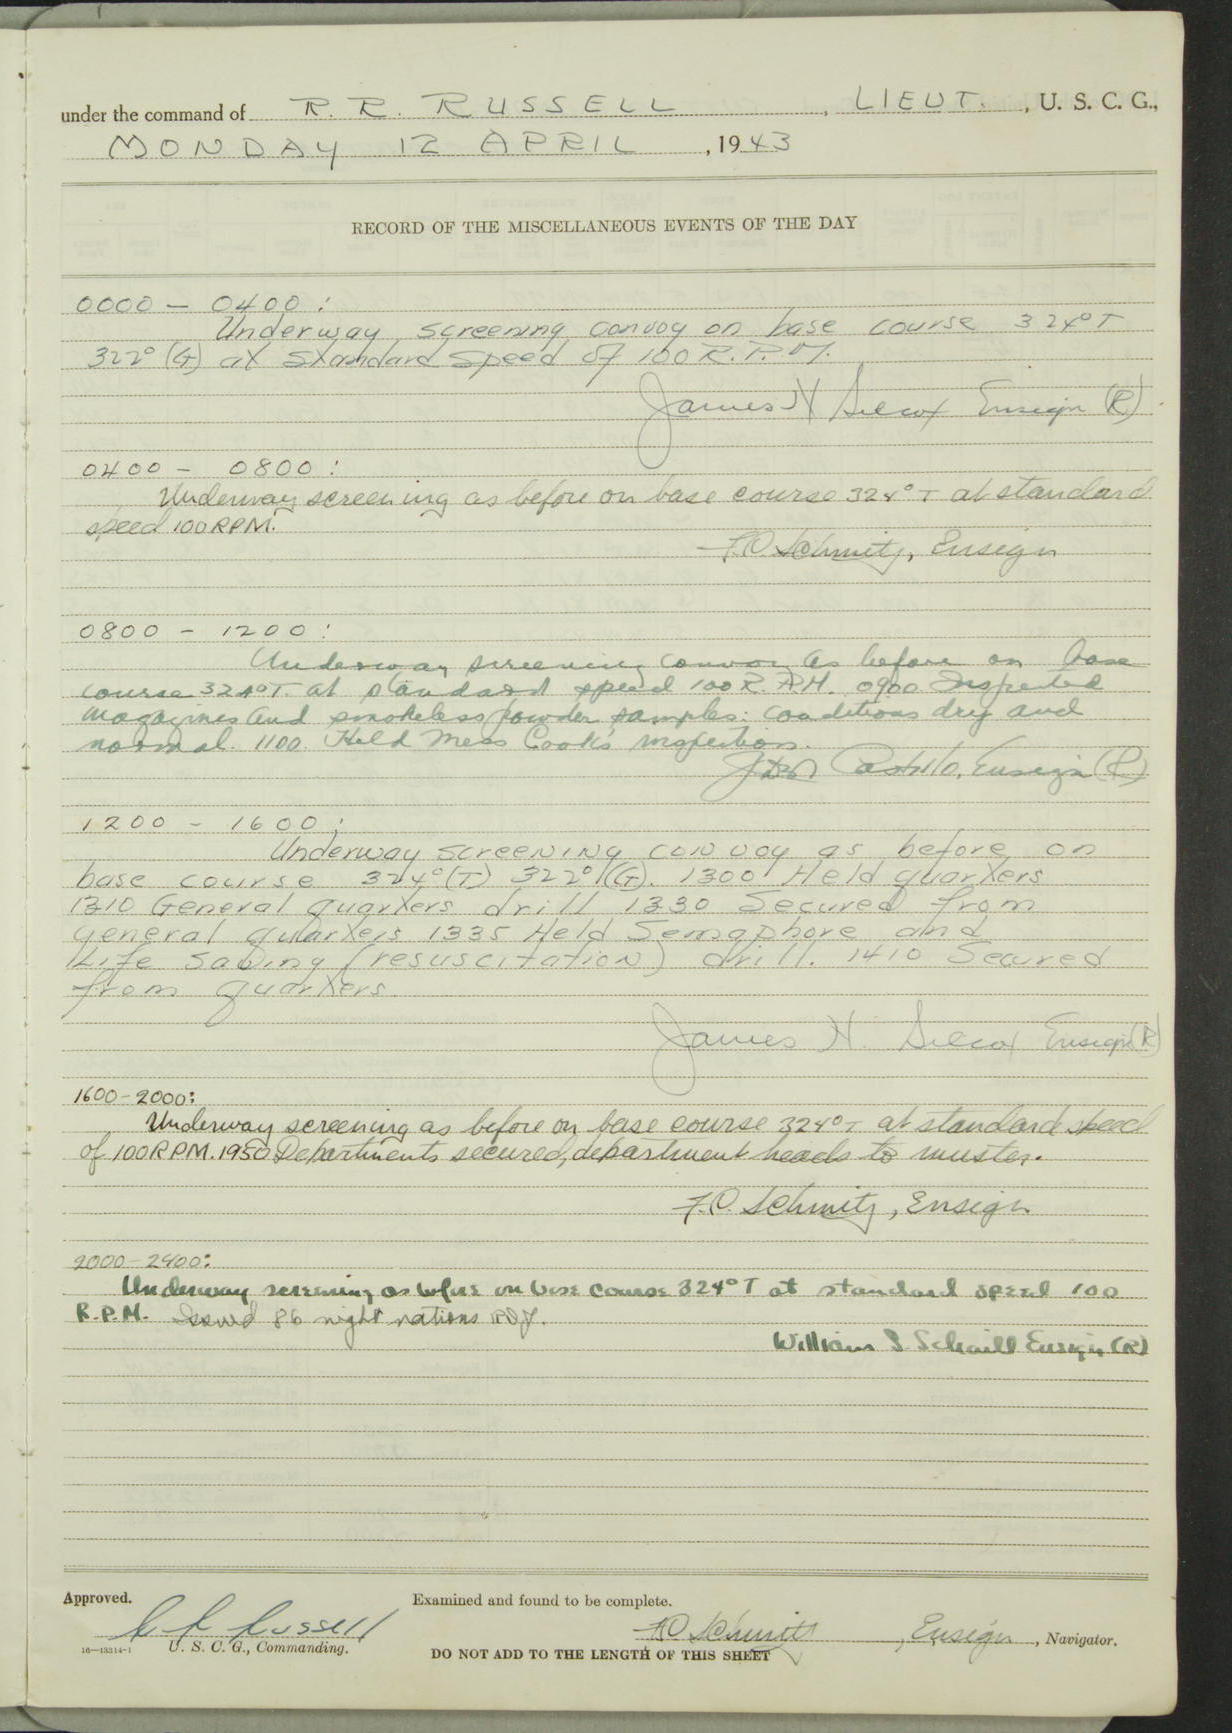 under the command of R. R. RUSSELL, LIEUT., U. S. C. G.,
MONDAY 12 APRIL, 1943
RECORD OF THE MISCELLANEOUS EVENTS OF THE DAY
0000 - 0400:
Underway screening convoy on base course 324° T
322° (G) at standard speed of 100 R.P.M.
James H Silcox Ensign (R)
0400 - 0800:
Underway screening as before on base course 324° T at standard
speed 100 RPM.
F.O. Schmitz, Ensign
0800 - 1200:
Underway screening convoy as before on base
course 324° T. at standard speed 100 R.P.M. 0900 Inspected
magazines and smokeless powder samples: conditions dry and
normal. 1100 Held Mess Cook's inspection.
Castillo, Ensign (R)
1200 - 1600:
Underway screening convoy as before on
base course 324° (T) 322° (G). 1300 Held quarters
1310 General quarters drill 1330 Secured from
general quarters 1335 Held Semaphore and
Life saving (resuscitation) drill. 1410 Secured
from quarters.
James H. Silcox Ensign (R)
1600-2000:
Underway screening as before on base course 324° T at standard speed
of 100 RPM. 1950 Departments secured, department heads to muster.
F.O. Schmitz, Ensign
2000-2400:
Underway screening as before on base course 324° T at standard speed 100
R.P.M. Issued 86 night rations
William S. Ensign (R)
Approved.
Examined and found to be complete.
R R Russell
F.O. Schmitz, Ensign, Navigator.
16—13314-1
U. S. C. G., Commanding.
DO NOT ADD TO THE LENGTH OF THIS SHEET